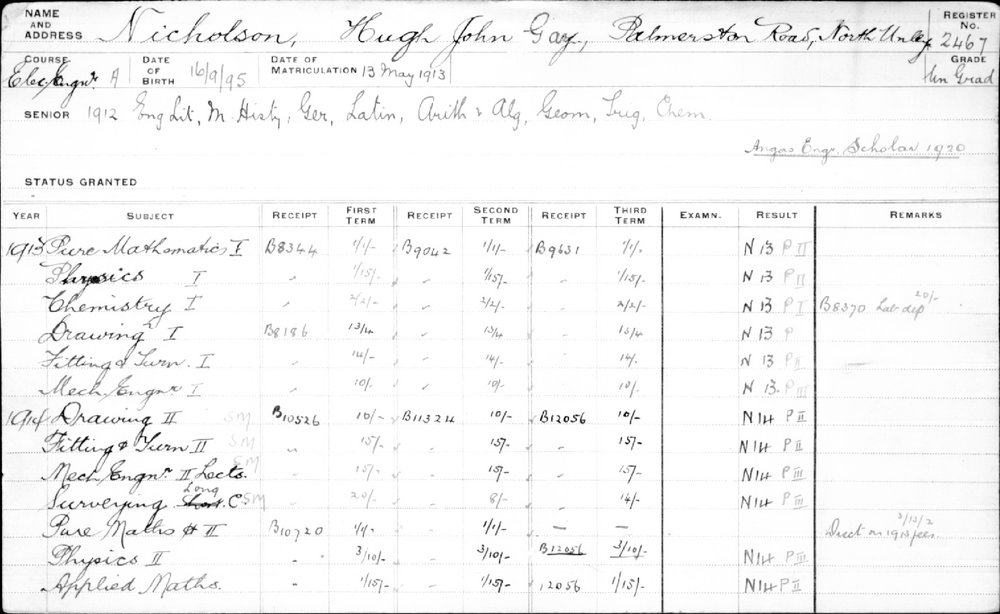 NAME AND ADDRESS Nicholson, Hugh John Gay, Palmerston Road, North Unley REGISTER No. 2467
COURSE Elec. Engnr. A DATE OF BIRTH 16/9/95 DATE OF MATRICULATION 13 May 1913 GRADE Un Grad
SENIOR 1912 Eng Lit, M. Histy, Ger, Latin, Arith & Alg, Geom, Trig, Chem
Angas Engr. Scholar 1920
STATUS GRANTED
YEAR SUBJECT RECEIPT FIRST TERM RECEIPT SECOND TERM RECEIPT THIRD TERM EXAMN. RESULT REMARKS
1913 Pure Mathematics I B8344 1/1/- B9042 1/1/- B9631 1/1/- N 13 P II
Physics I " 1/15/- " 1/15/- " 1/15/- N 13 P II
Chemistry I " 2/2/- " 2/2/- " 2/2/- N 13 P I B8370 Lab dep 20/-
Drawing I B8186 13/4 " 13/4 " 13/4 N 13 P
Fitting & Turn. I " 14/- " 14/- " 14/- N 13 P II
Mech. Engnr. I " 10/- " 10/- " 10/- N 13 P III
1914 Drawing II SM B10526 10/- B11324 10/- B12056 10/- N14 P II
Fitting & Turn II SM " 15/- " 15/- 15/- N14 P II
Mech. Engnr. II Lects. SM " 15/- " 15/- 15/- N14 P III
Surveying Long C. SM " 20/- " 8/- " 4/- N14 P III
Pure Maths II B10720 1/1/- 1/1/- — — 3/13/2 on 1913 fees
Physics II " 3/10/- 3/10/- B12056 3/10/- N14 P III
Applied Maths. " 1/15/- 1/15/- 12056 1/15/- N14 P II